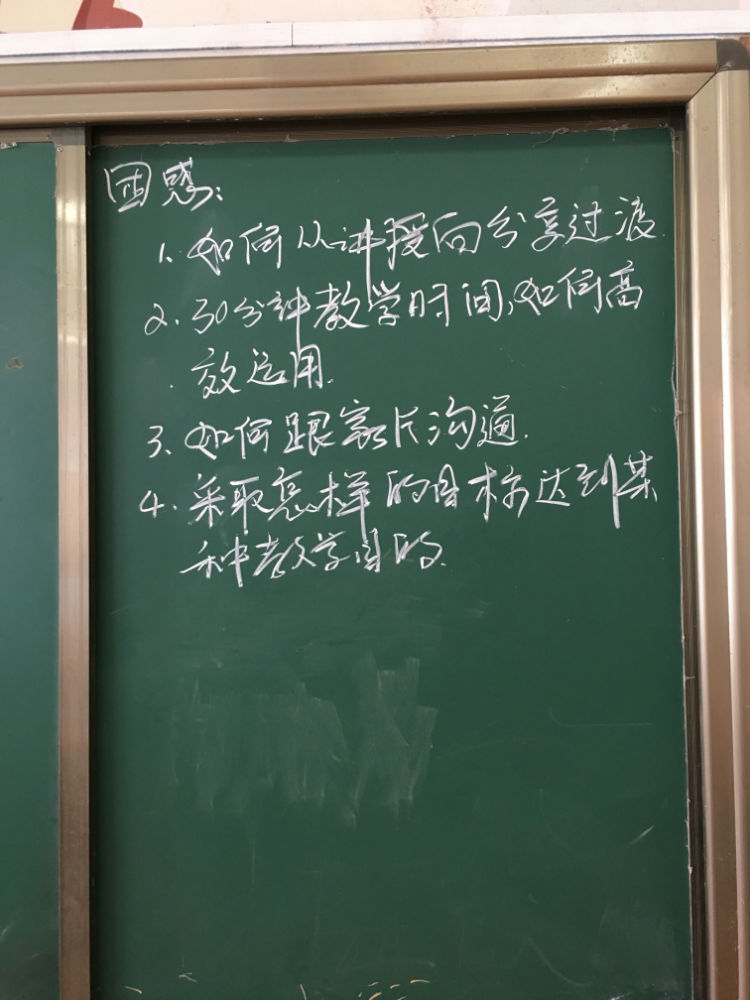 困惑：
1、如何从讲授向分享过渡.
2、30分钟教学时间，如何高
效运用.
3、如何跟家长沟通.
4、采取怎样的目标达到某
种教学目的.